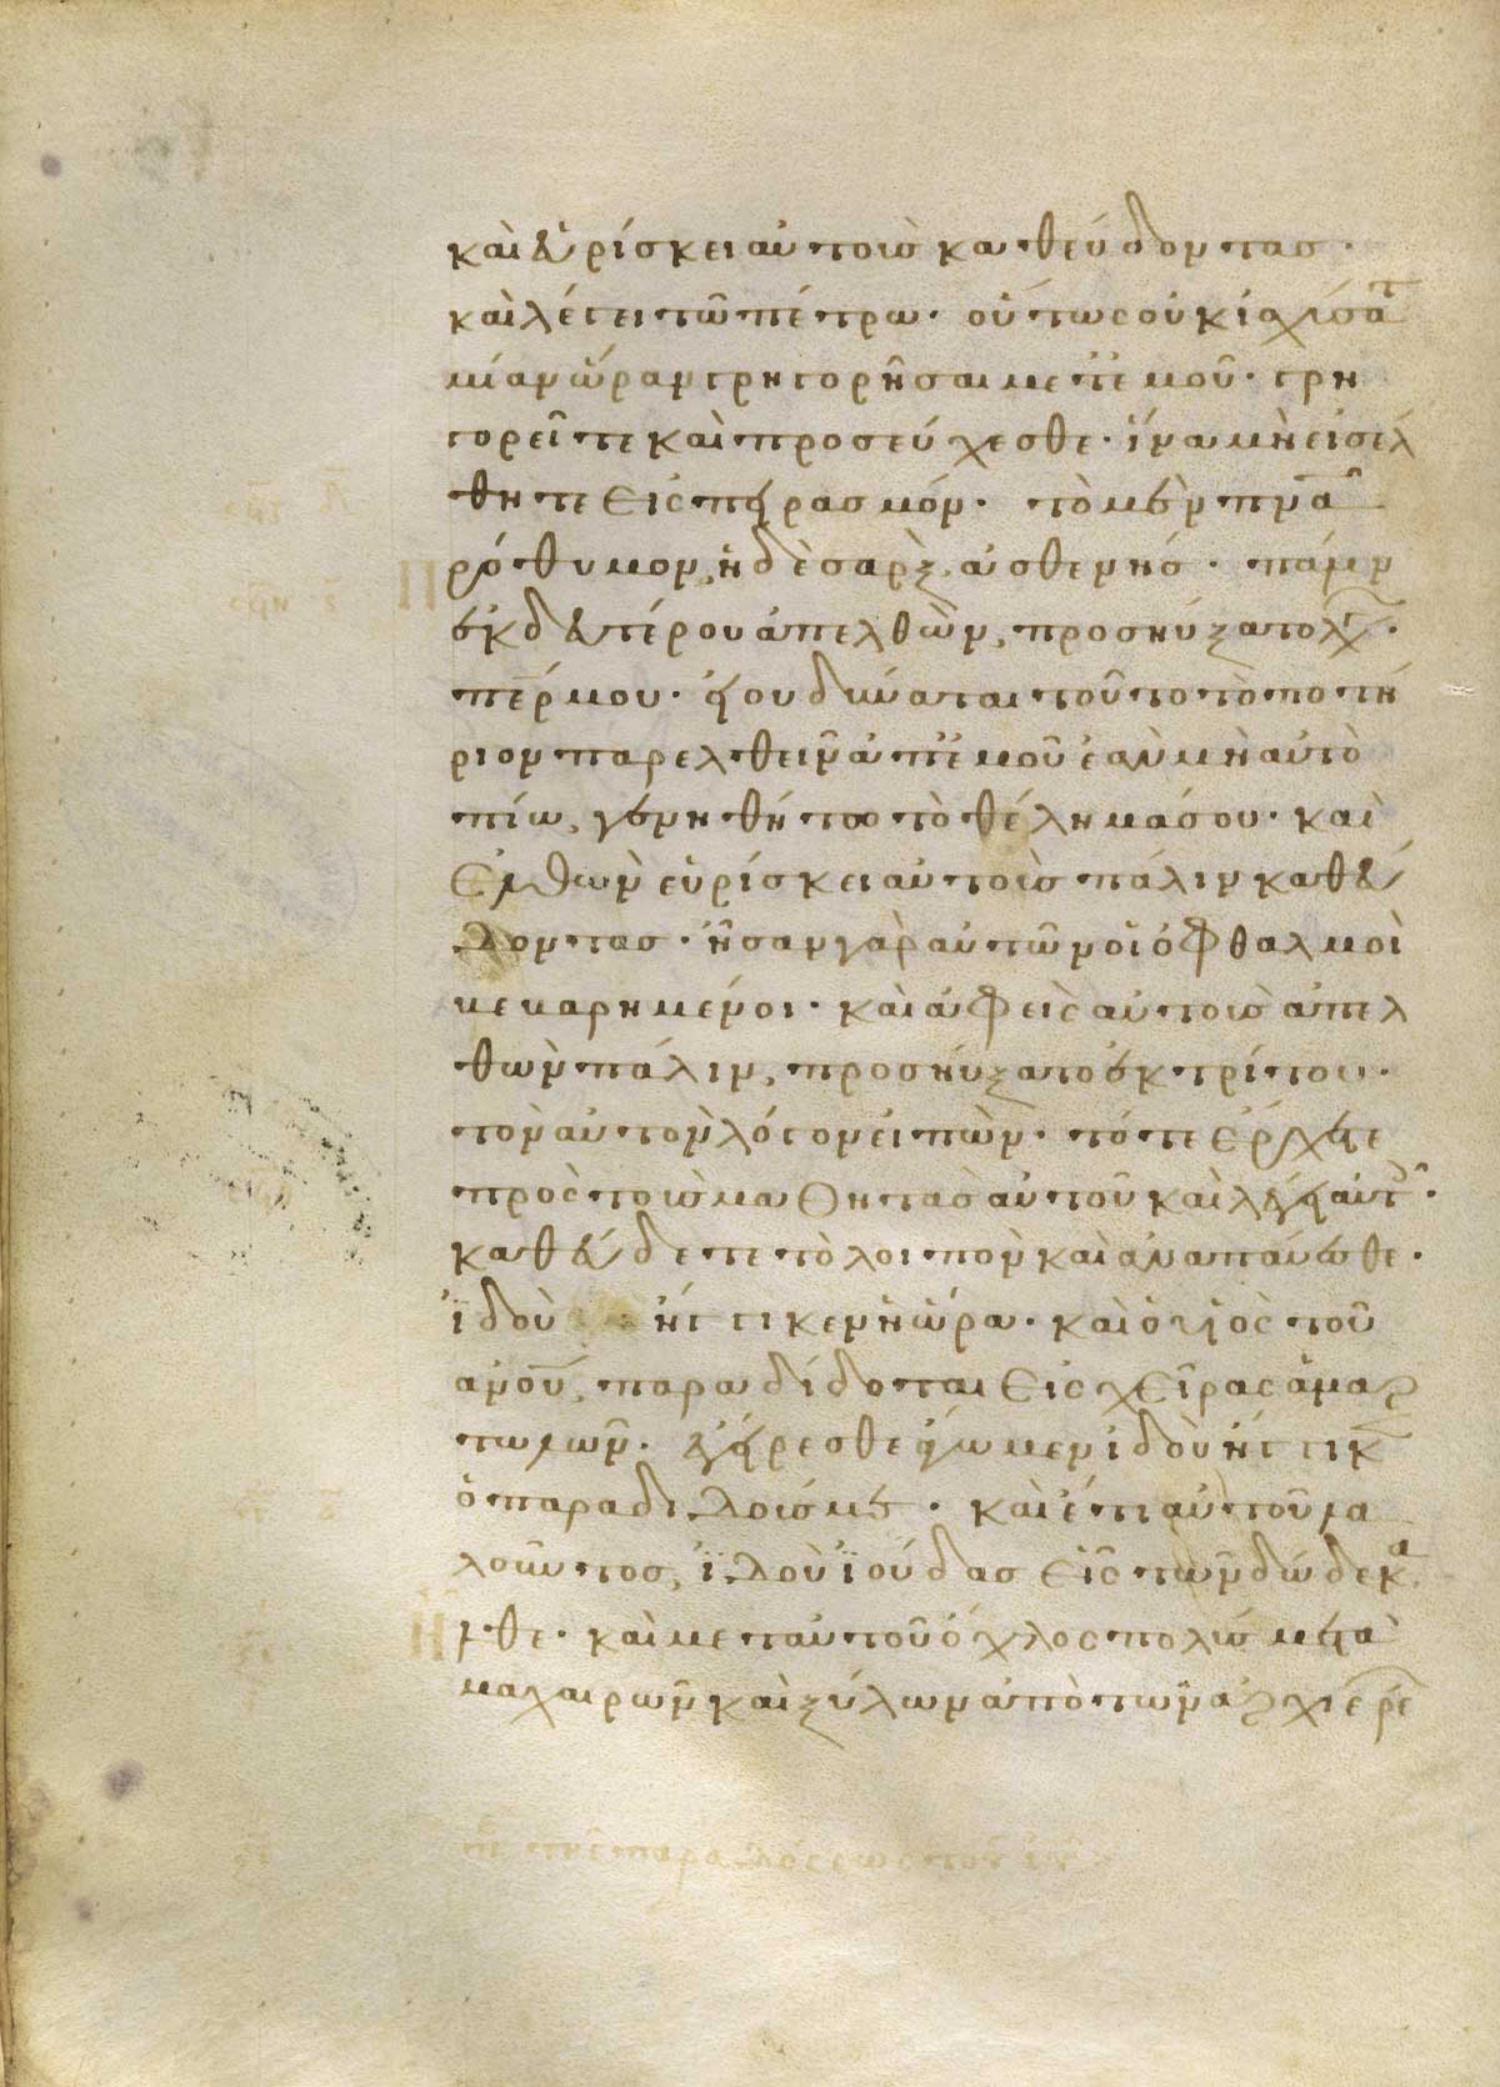 καὶ εὑρίσκει αὐτοὺς καθεύδοντας·
καὶ λέγει τῶ πέτρω· οὕτως οὐκ ἰσχύσατ
μίαν ὥραν γρηγορῆσαι μετ ἐμοῦ· γρη
γορεῖτε καὶ προσεύχεσθε· ἵνα μὴ εἰσέλ
θητε εἰς πειρασμόν· τὸ μὲν πνα
πρόθυμον, ἡ δὲ σὰρξ, ἀσθενής· πάλιν
ἐκ δευτέρου ἀπελθὼν, προσηύξατο λγ·
περ μου· εἰ ου δύναται τοῦτο τὸ ποτή
ριον παρελθεῖν ἀπ ἐμοῦ ἐὰν μὴ αὐτὸ
πίω, γενηθήτω τὸ θέλημά σου· καὶ
ἐλθὼν εὑρίσκει αὐτοὺς πάλιν καθεύ
δοντας· ἦσαν γὰρ αὐτῶν οἱ ὀφθαλμοὶ
βεβαρημένοι· καὶ ἀφεὶς αὐτοὺς ἀπελ
θὼν πάλιν, προσηύξατο ἐκ τρίτου·
τὸν αὐτὸν λόγον εἰπών· τότε ἔρχεται
πρὸς τοὺς μαθητὰς αὐτοῦ καὶ λέγει αὐτ·
καθεύδετε τὸ λοιπὸν καὶ ἀναπαύεσθε·
ἰδοὺ ἤγγικεν ἡ ὥρα· καὶ ὁ υἱὸς τοῦ
ανου, παραδίδοται εἰς χεῖρας ἁμαρ
τωλῶν· ἐγείρεσθε ἄγωμεν ἰδοὺ ἤγγικ
ὁ παραδιδούς με· καὶ ἔτι αὐτοῦ λα
λοῦντος, ἰδοὺ ἰούδας εἷς τῶν δώδεκα
ἦλθε· καὶ μετ αὐτοῦ ὄχλος πολὺς μετὰ
μαχαιρῶν καὶ ξύλων ἀπὸ τῶν ἀρχιερε